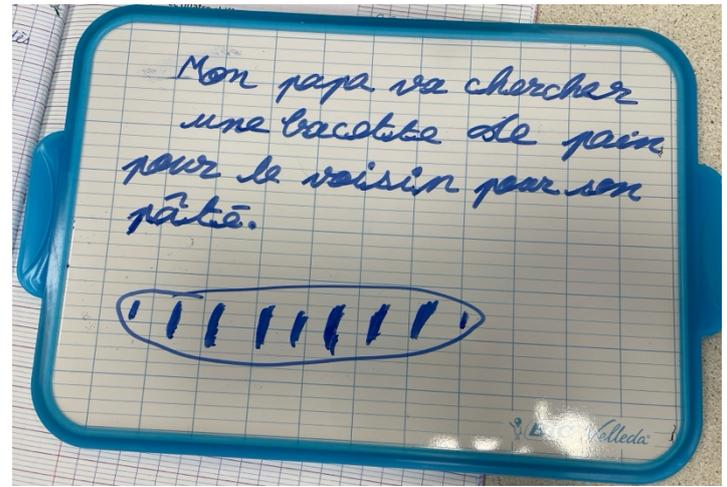 Mon papa va chercher
une bacette de pain
pour le voisin pour son
pâté.
BIC Velleda